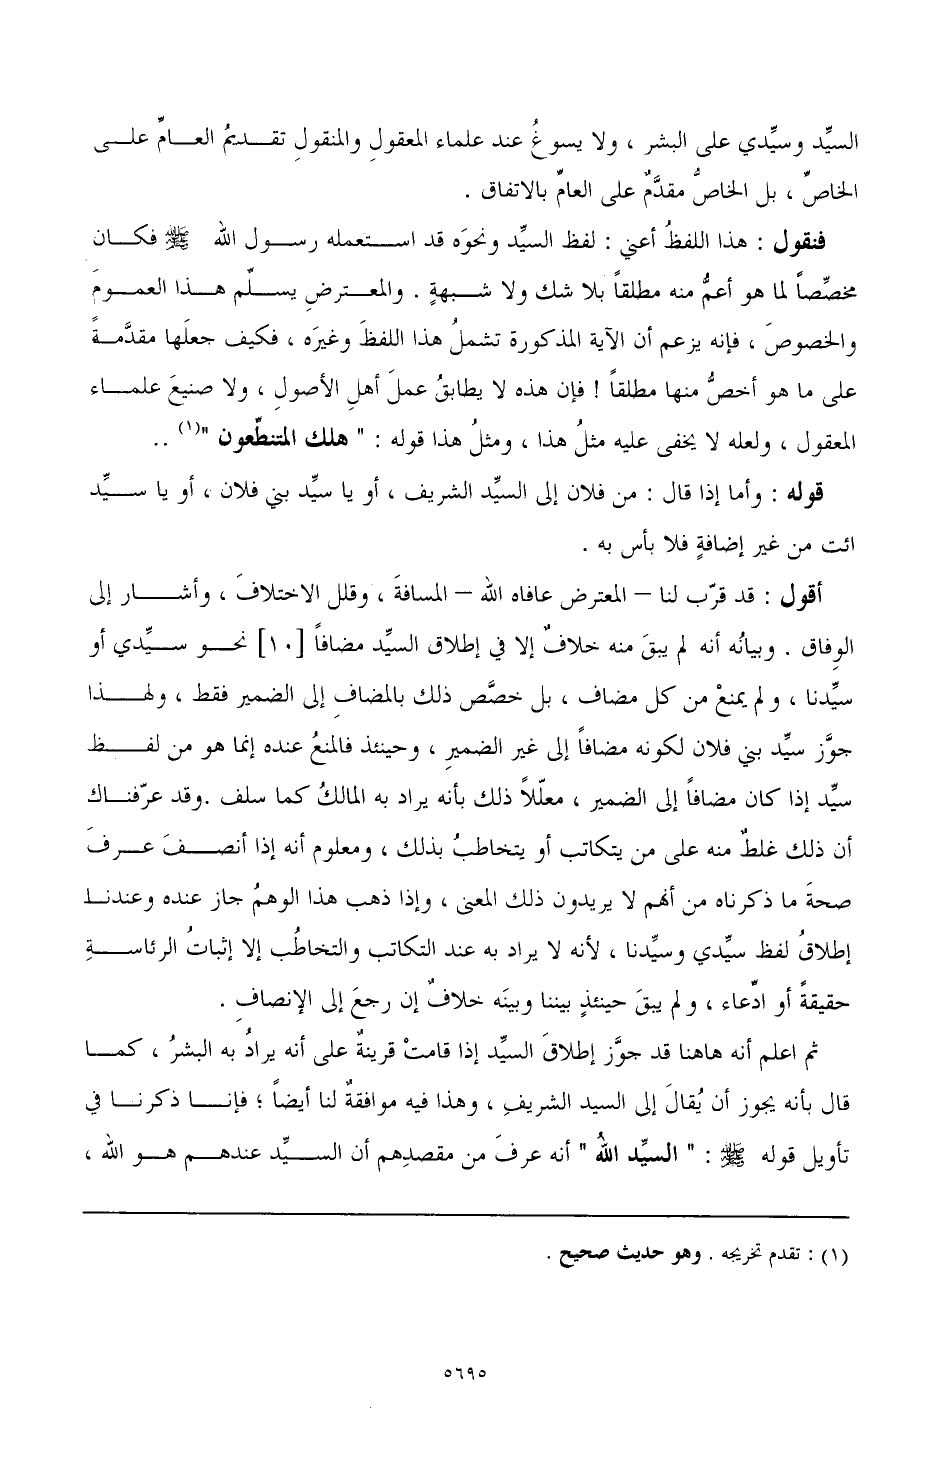 السيِّد وسيِّدي على البشر ، ولا يسوغُ عند علماء المعقولِ والمنقولِ تقـديمُ العـامِّ علـى
الخاصِّ ، بل الخاصُّ مقدَّمٌ على العامِّ بالاتفاق .
فنقول : هذا اللفظُ أعني : لفظ السيِّد ونحوَه قد استعمله رسول الله ﷺ فكان
مخصِّصاً لما هو أعمُّ منه مطلقاً بلا شك ولا شبهةٍ . والمعترض يسلّم هذا العمومَ
والخصوصَ ، فإنه يزعم أن الآية المذكورة تشملُ هذا اللفظَ وغيرَه ، فكيف جعلَها مقدَّمةً
على ما هو أخصُّ منها مطلقاً ! فإن هذه لا يطابقُ عملَ أهلِ الأصولِ ، ولا صنيعَ علماء
المعقول ، ولعله لا يخفى عليه مثلُ هذا ، ومثلُ هذا قوله : " هلك المتنطّعون "(١) ..
قوله : وأما إذا قال : من فلان إلى السيِّد الشريف ، أو يا سيِّد بني فلان ، أو يا سيِّد
ائت من غير إضافةٍ فلا بأس به .
أقول : قد قرّب لنا – المعترض عافاه الله – المسافةَ ، وقلل الاختلافَ ، وأشار إلى
الوفاق . وبيانُه أنه لم يبقَ منه خلافٌ إلا في إطلاق السيِّد مضافاً [١٠] نحو سيِّدي أو
سيِّدنا ، ولم يمنعْ من كل مضاف ، بل خصَّص ذلك بالمضافِ إلى الضمير فقط ، ولهذا
جوَّز سيِّد بني فلان لكونه مضافاً إلى غير الضميرِ ، وحينئذ فالمنعُ عنده إنما هو من لفظ
سيِّد إذا كان مضافاً إلى الضمير ، معلّلاً ذلك بأنه يراد به المالكُ كما سلف .وقد عرّفناك
أن ذلك غلطٌ منه على من يتكاتب أو يتخاطبُ بذلك ، ومعلوم أنه إذا أنصفَ عرفَ
صحةَ ما ذكرناه من أنهم لا يريدون ذلك المعنى ، وإذا ذهب هذا الوهمُ جاز عنده وعندنا
إطلاقُ لفظ سيِّدي وسيِّدنا ، لأنه لا يراد به عند التكاتب والتخاطُب إلا إثباتُ الرئاسةِ
حقيقةً أو ادّعاء ، ولم يبقَ حينئذٍ بيننا وبينَه خلافٌ إن رجعَ إلى الإنصافِ .
ثم اعلم أنه هاهنا قد جوَّز إطلاقَ السيِّد إذا قامتْ قرينةٌ على أنه يرادُ به البشرُ ، كما
قال بأنه يجوز أن يُقالَ إلى السيد الشريفِ ، وهذا فيه موافقةٌ لنا أيضاً ؛ فإنا ذكرنا في
تأويل قوله ﷺ : " السيِّد اللهُ " أنه عرفَ من مقصدِهم أن السيِّد عندهم هو الله ،
(١) : تقدم تخريجه . وهو حديث صحيح .
٥٦٩٥